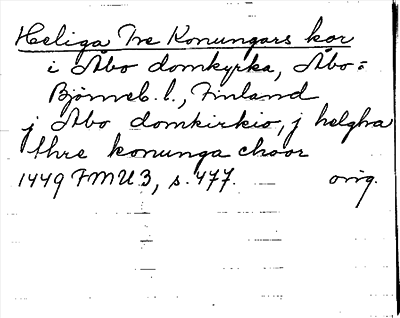 Heliga Tre Konungars kor
i Åbo domkyrka, Åbo=
Björneb. l., Finland
j Åbo domkirkio, j helgha
thre konunga choor
1449 FMU 3, s. 477. orig.